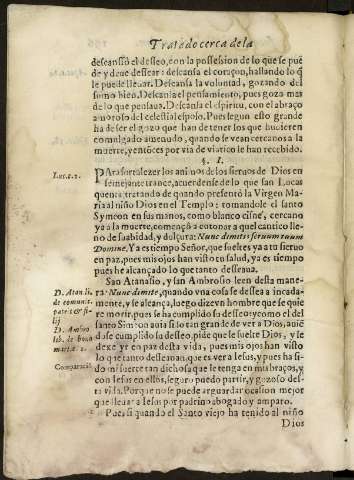 Tratado cerca de la
descansa el desseo, con la possession de lo que se pue
de y deue dessear: descansa el coraçon, hallando lo q̃
le puede llenar. Descansa la voluntad, gozando del
sumo bien. Descansa el pensamiento, pues goza mas
de lo que pensaua. Descansa el espiritu, con el abraço
amoroso del celestial esposo. Pues segun esto grande
ha de ser el gozo que han de tener los que huuieren
comulgado amenudo, quando se vean cercanos a la
muerte, y entõces por via de viatico le han recebido.
§. I.
Luc. c. 2.
PAra fortalezer los animos de los sieruos de Dios en
semejante trance, acuerdense de lo que san Lucas
quenta tratando de quando presentó la Virgen Ma-
ria al niño Dios en el Templo: tomandole el santo
Symeon en sus manos, como blanco cisne, cercano
ya a la muerte, començò a entonar aquel cantico lle-
no de suauidad, y dulçura: Nunc dimittis seruum tuum
Domine, Ya es tiempo Señor, que sueltes ya a tu sieruo
en paz, pues mis ojos han visto tu salud, ya es tiempo
pues he alcançado lo que tanto desseaua.
San Atanasio, y san Ambrosio leen desta mane-
D. Atan. li.
de comuni.
pare i e fi-
lij
D. Ambro
lib. de bono
mort. c. 2.
ra: Nunc dimitte, quando vna cosa se dessea a incada-
mente, y se alcança, luego dizen hombre que se quie
re morir, pues se ha cumplido su desseo: y como el del
santo Simeon auia sido tan grande de ver a Dios, auiẽ
dose cumplido su desseo, pide que se suelte Dios, y se
dexe yr en paz desta vida, pues mis ojos han visto
Comparaciõ
lo que tanto desseauan, que es ver a Iesus, y pues ha si-
do mi suerte tan dichosa que le tenga en mis braços, y
con Iesus en ellos, seguro puedo partir, y gozoso des-
ta vida. Porque no se puede aguardar ocasion mejor
que lleuar a Iesus por padrino abogado y amparo.
Pues si quando el Santo viejo ha tenido al niño
Dios